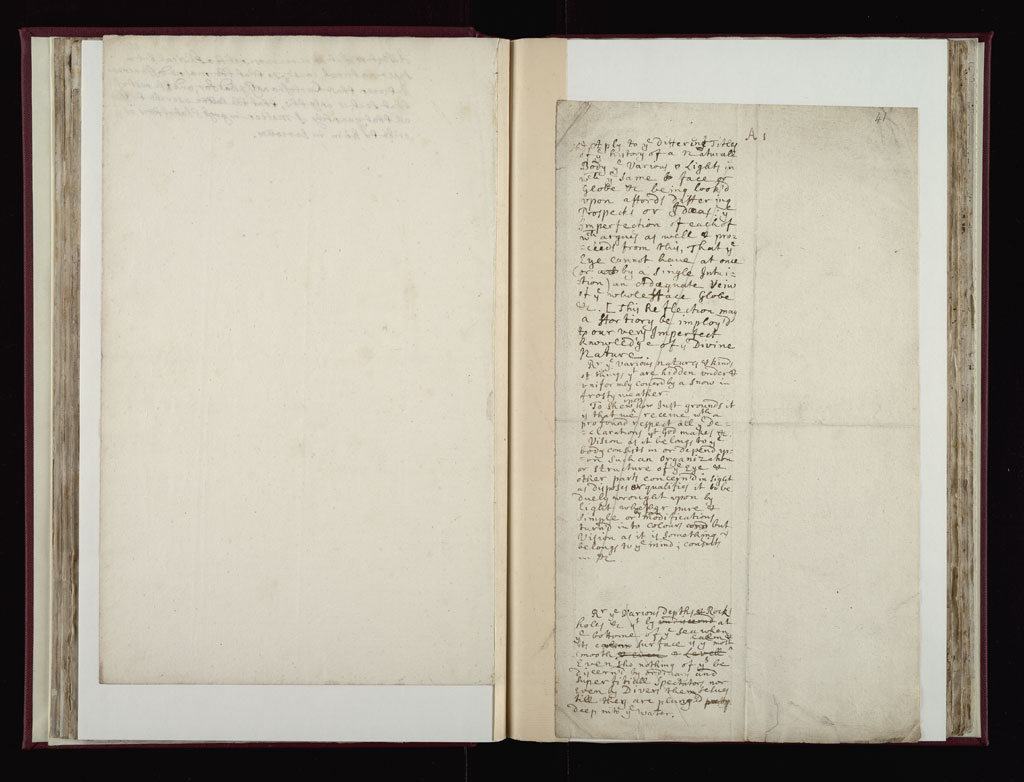 41
A 1
Apply to yᵉ differing Titles
of yᵉ history of a Naturall
Body yᵉ Various & Lights in
wᶜʰ yᵉ same face or
Globe &c being look'd
upon affords differing
Prospects or Ideas: yᵉ
Imperfection of each of
wᶜʰ argues as well & pro=
=ceeds from this, That yᵉ
Eye cannot have at once
(or by a single Intui=
=tion) an Adæquate Veiw
of yᵉ whole face Globe
&c. [This Reflection may
a Fortiory be imploy'd
to our very Imperfect
knowledge of yᵉ Divine
Nature.
Rʳ yᵉ various natures & kinds
of things yᵗ are hidden under &
uniformly cover'd by a Snow in
frosty weather.
To shew upon how Just grounds it
is that we receive wᵗʰ a
profound respect all yᵉ De=
=clarations yᵗ God makes &c
Vision as it belongs to yᵉ
body consists in or depends
on such an Organization
or structure of yᵉ Eye &
other parts concern'd in sight
as disposes or qualifies it to be
duely wrought upon by
light, whether pure &
simple or by modifications
turn'd in to colours but
Vision as it is something yᵗ
belongs to yᵉ mind; consists
in &c
Rʳ yᵉ various depths & Rocks
holes &c yᵗ ly at
yᵉ bottome of yᵉ sea when
its calme surface is yᵉ most
smooth, & even & Levell
Even tho nothing of yˢ be
discern'd by ordinary and
superficiall Spectators nor
even by Divers themselves
till they are plung'd pretty
deep into yᵉ water.